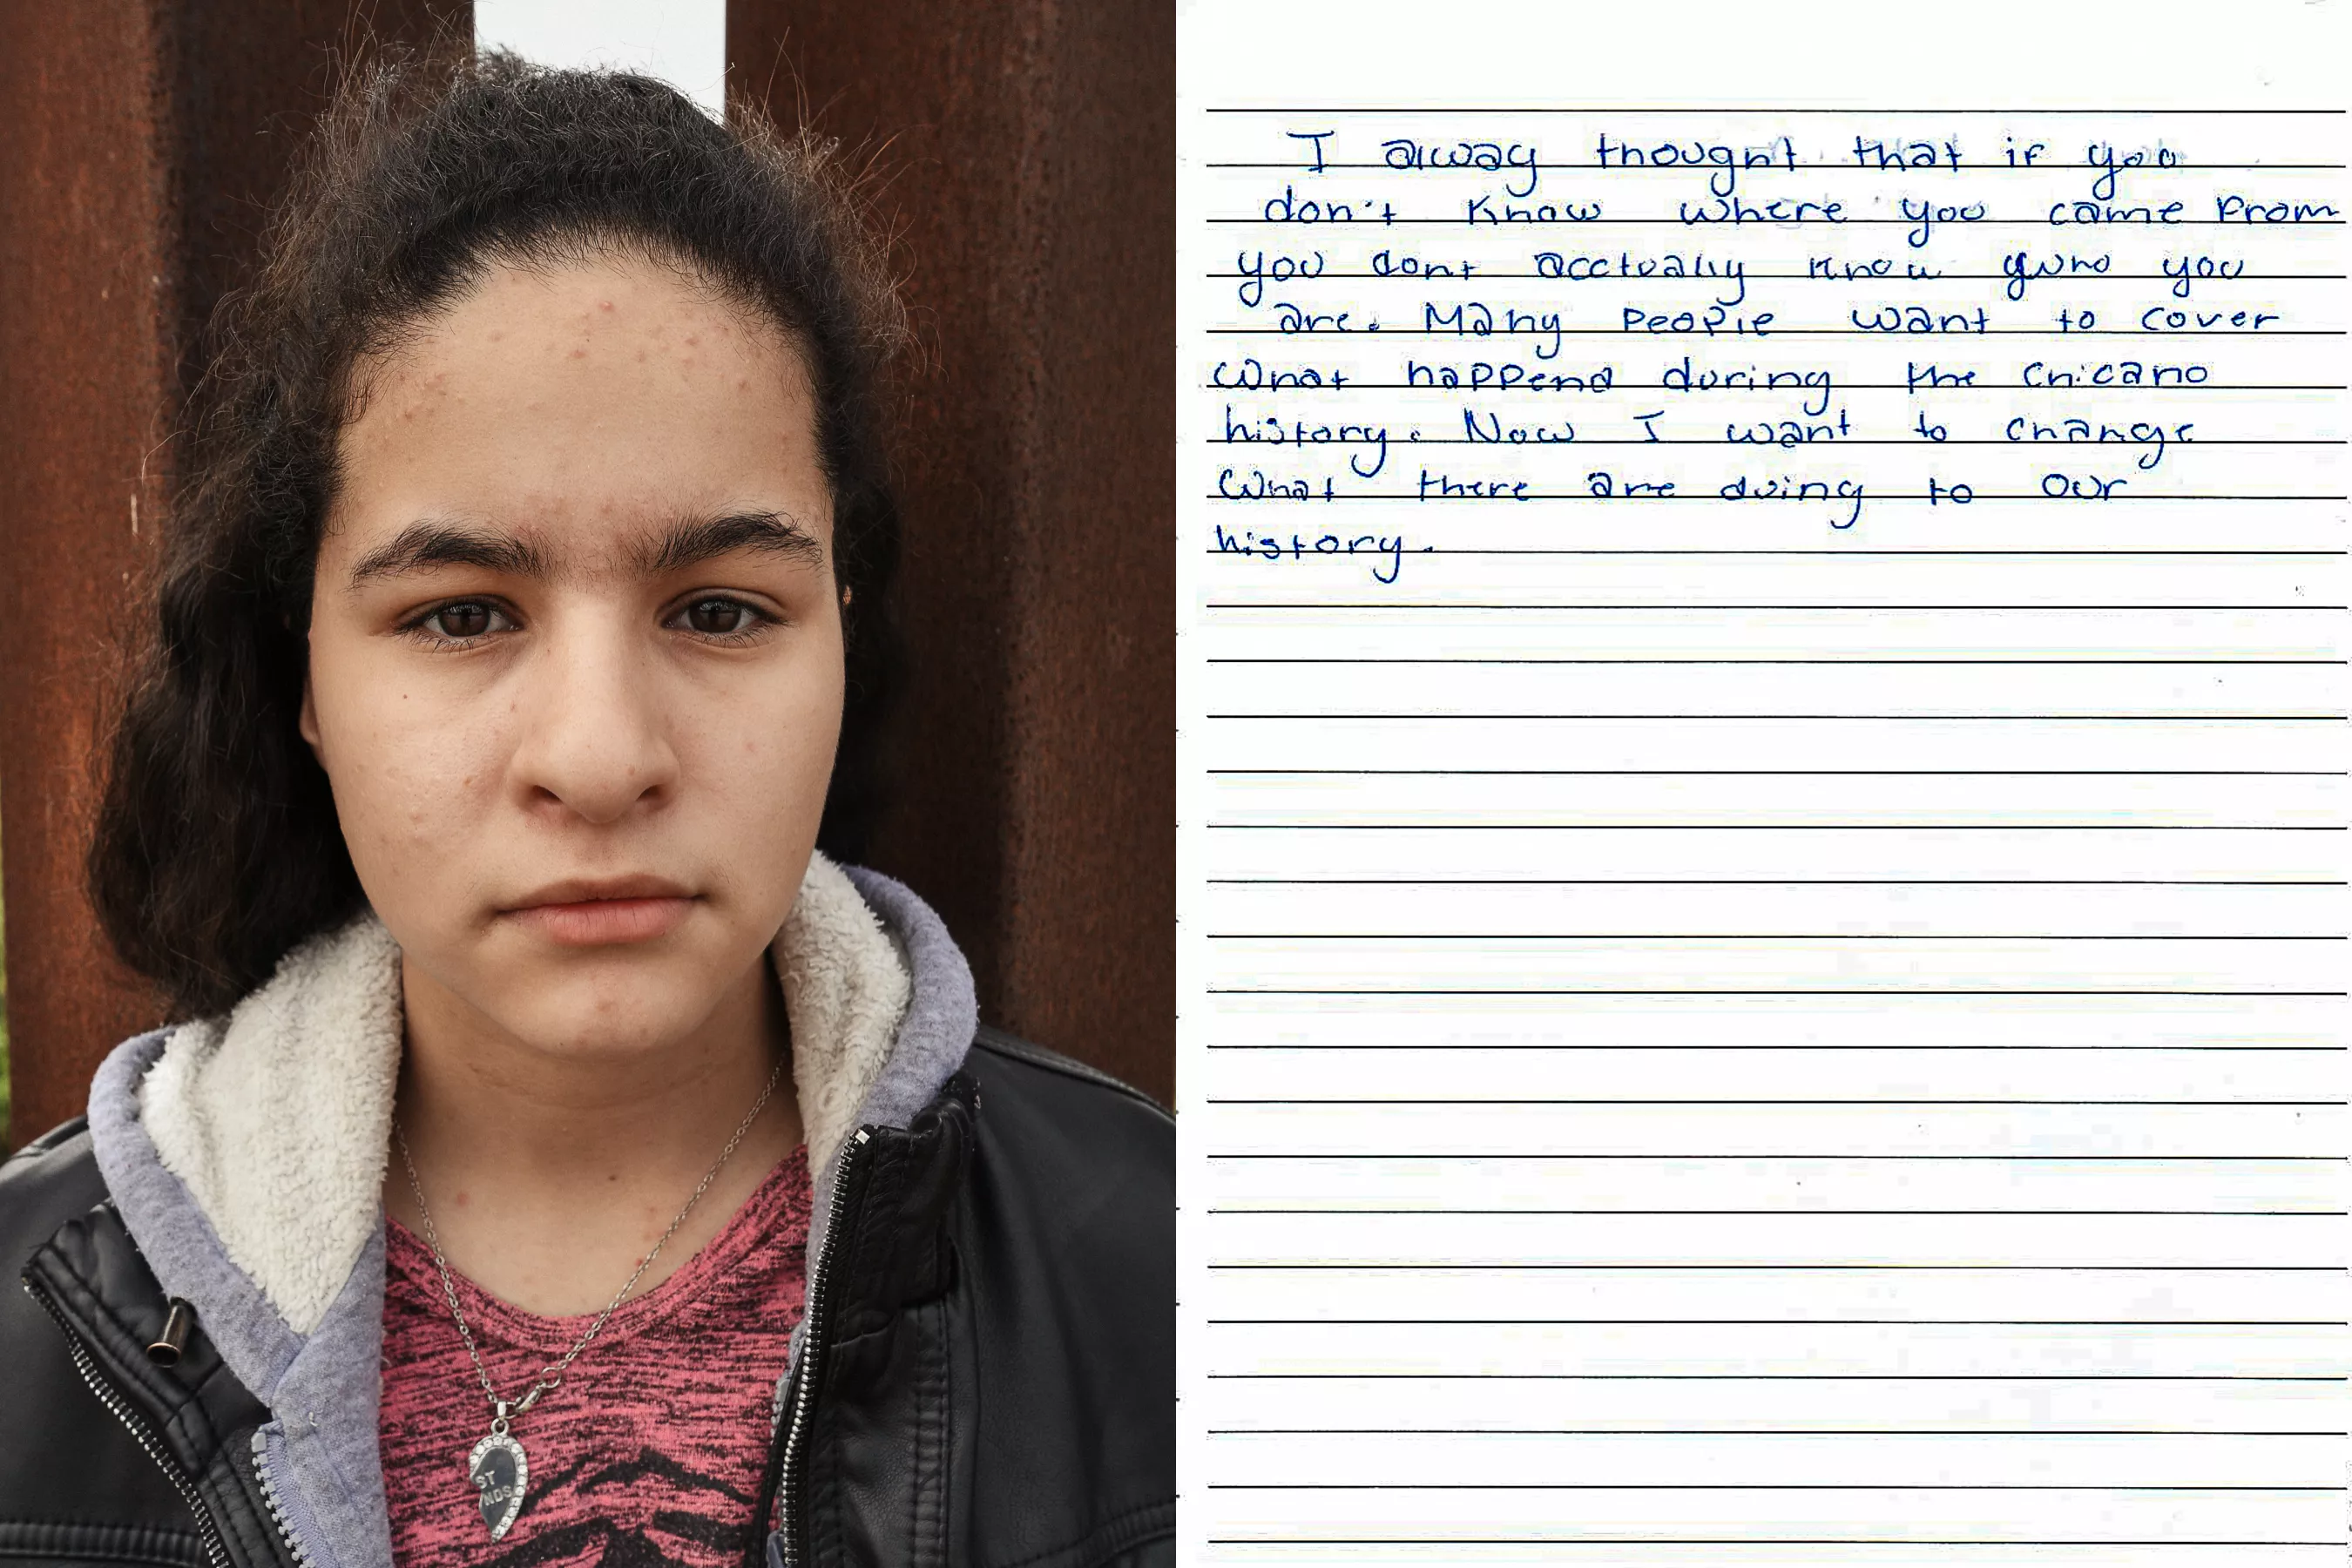 I alway thought that if you
don't know where you came from
you dont acctually know who you
are. Many people want to cover
what happend during the Chicano
history. Now I want to change
what there are doing to our
history.
ST
NDS